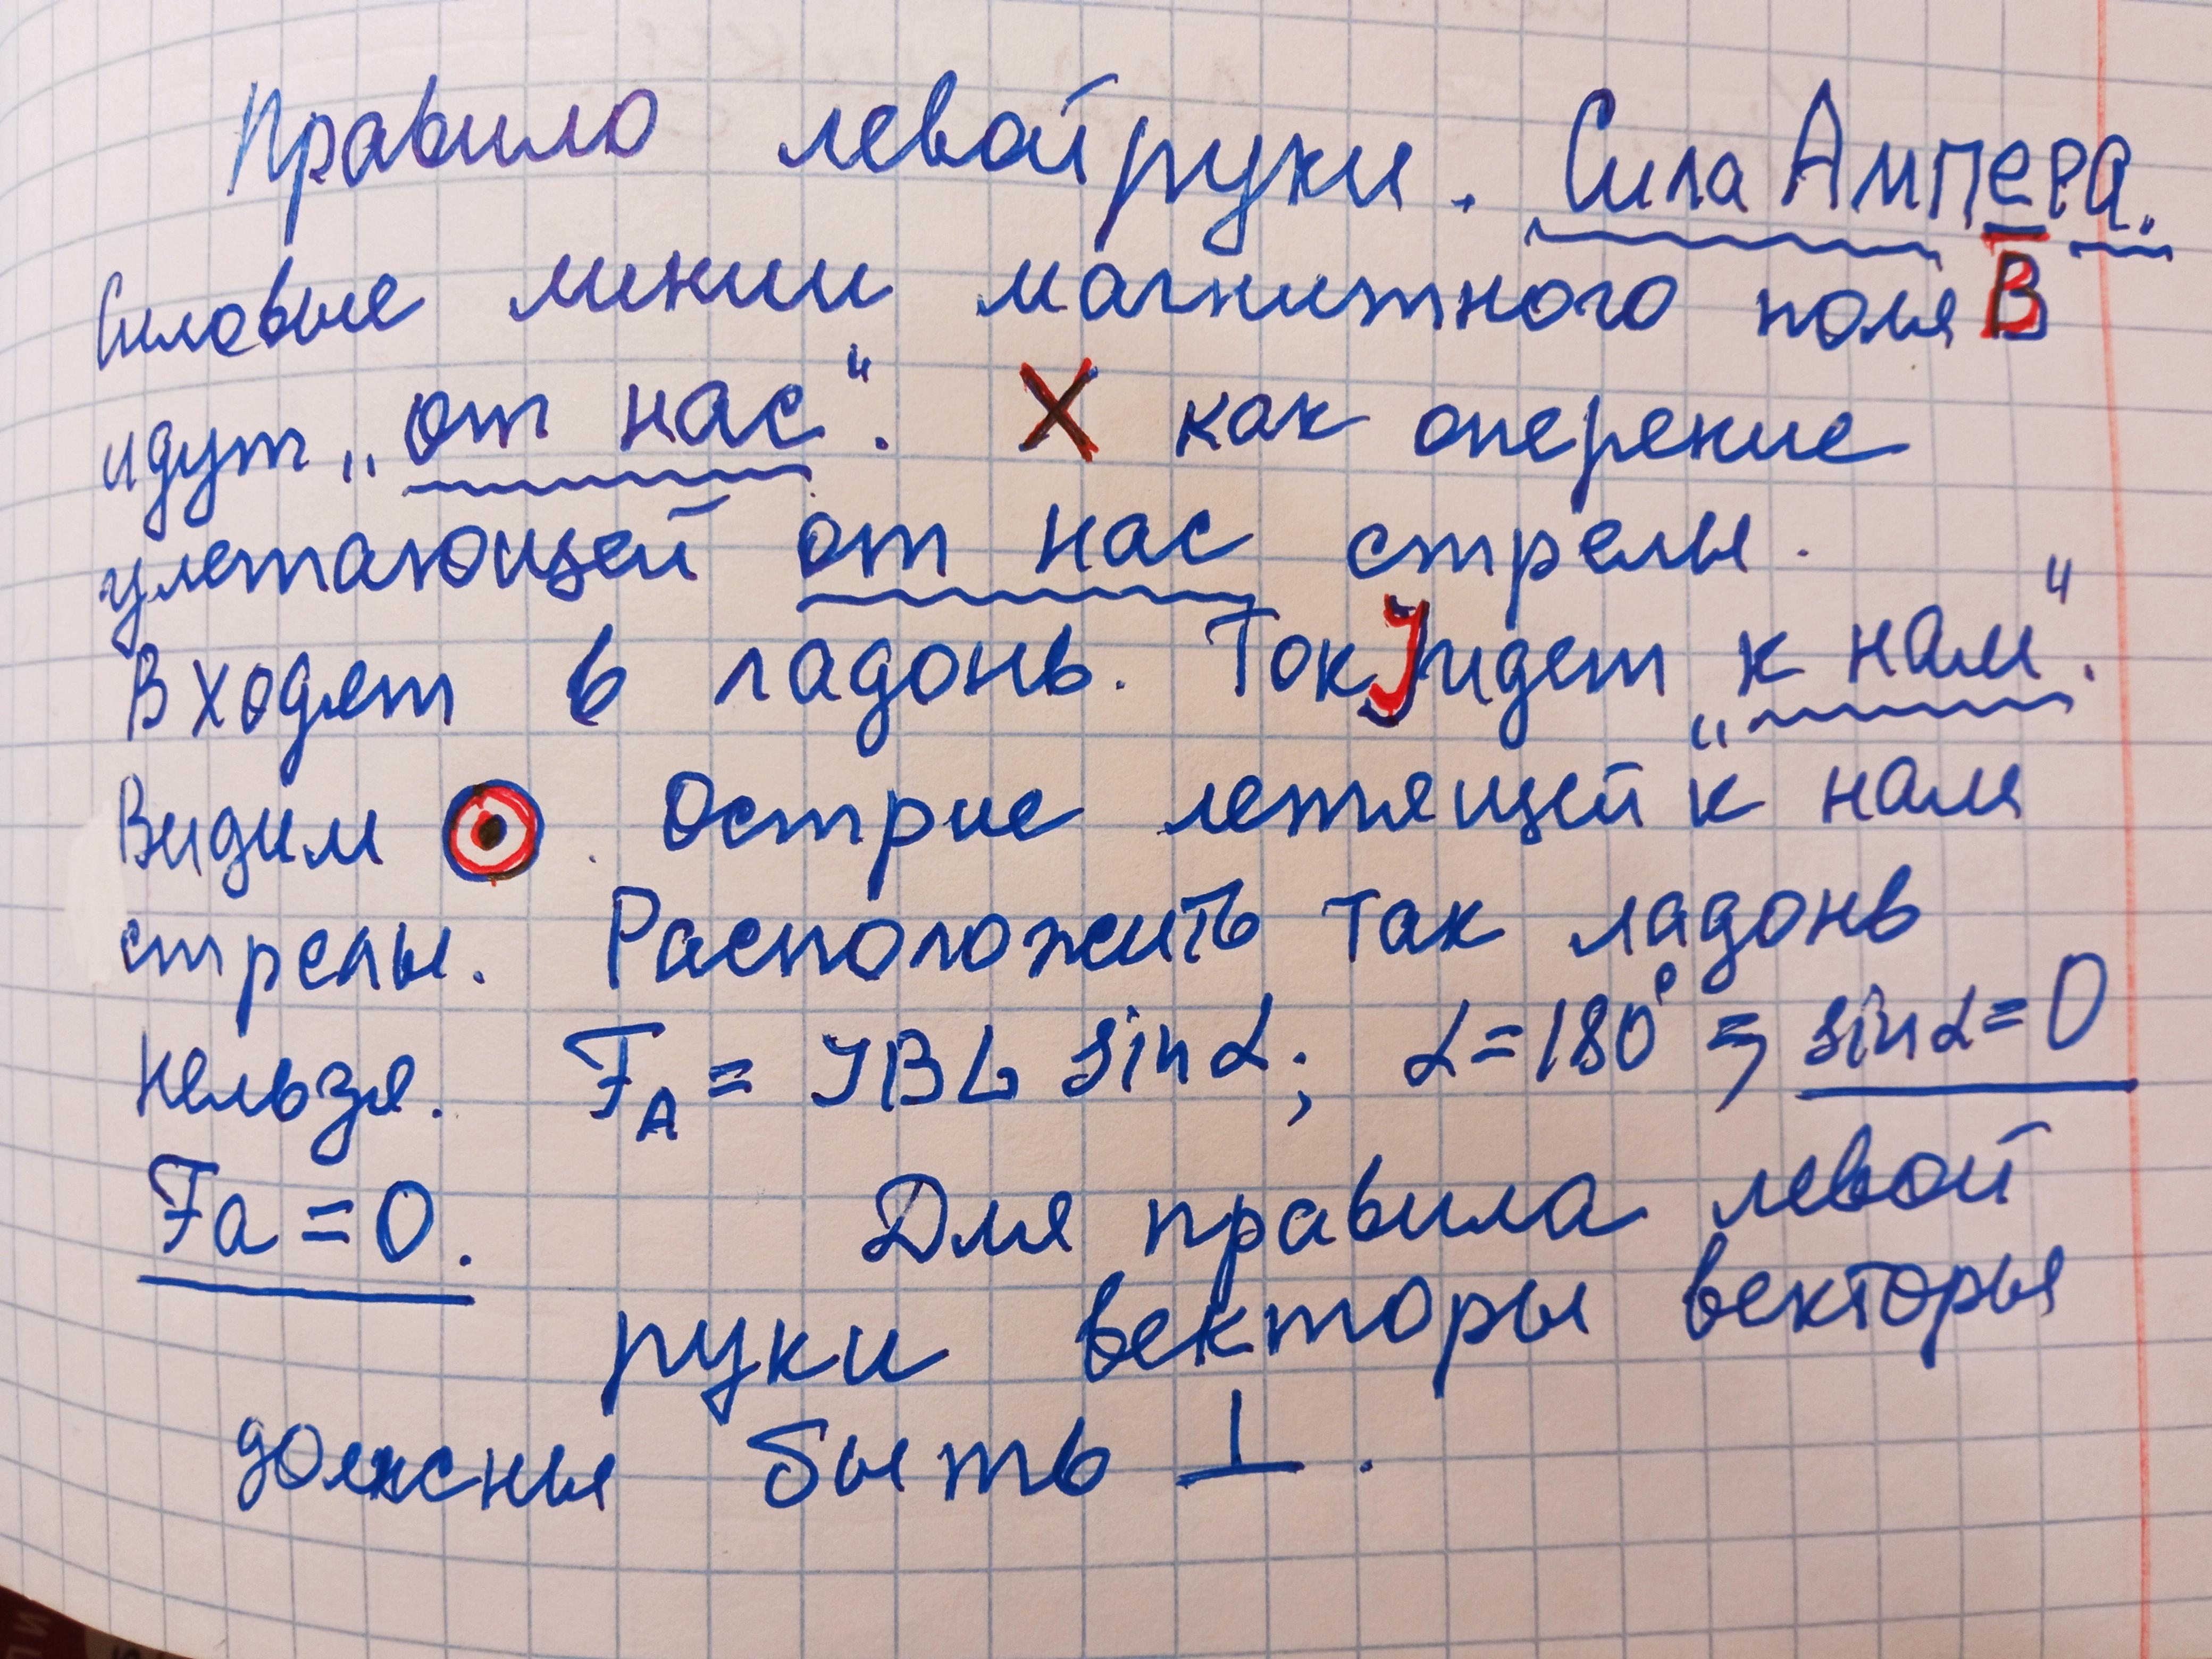 Правило левой руки. Сила Ампера.
Силовые линии магнитного поля B̅
идут „от нас". X как оперение
улетающей от нас стрелы.
Входят в ладонь. Ток J идет „к нам".
Видим ⊙. Острие летящей к нам
стрелы. Расположить так ладонь
нельзя. F_A = JBL sinα; α=180° ⇒ sinα=0
Fa=0. Для правила левой
руки векторы векторы
должны быть ⊥.